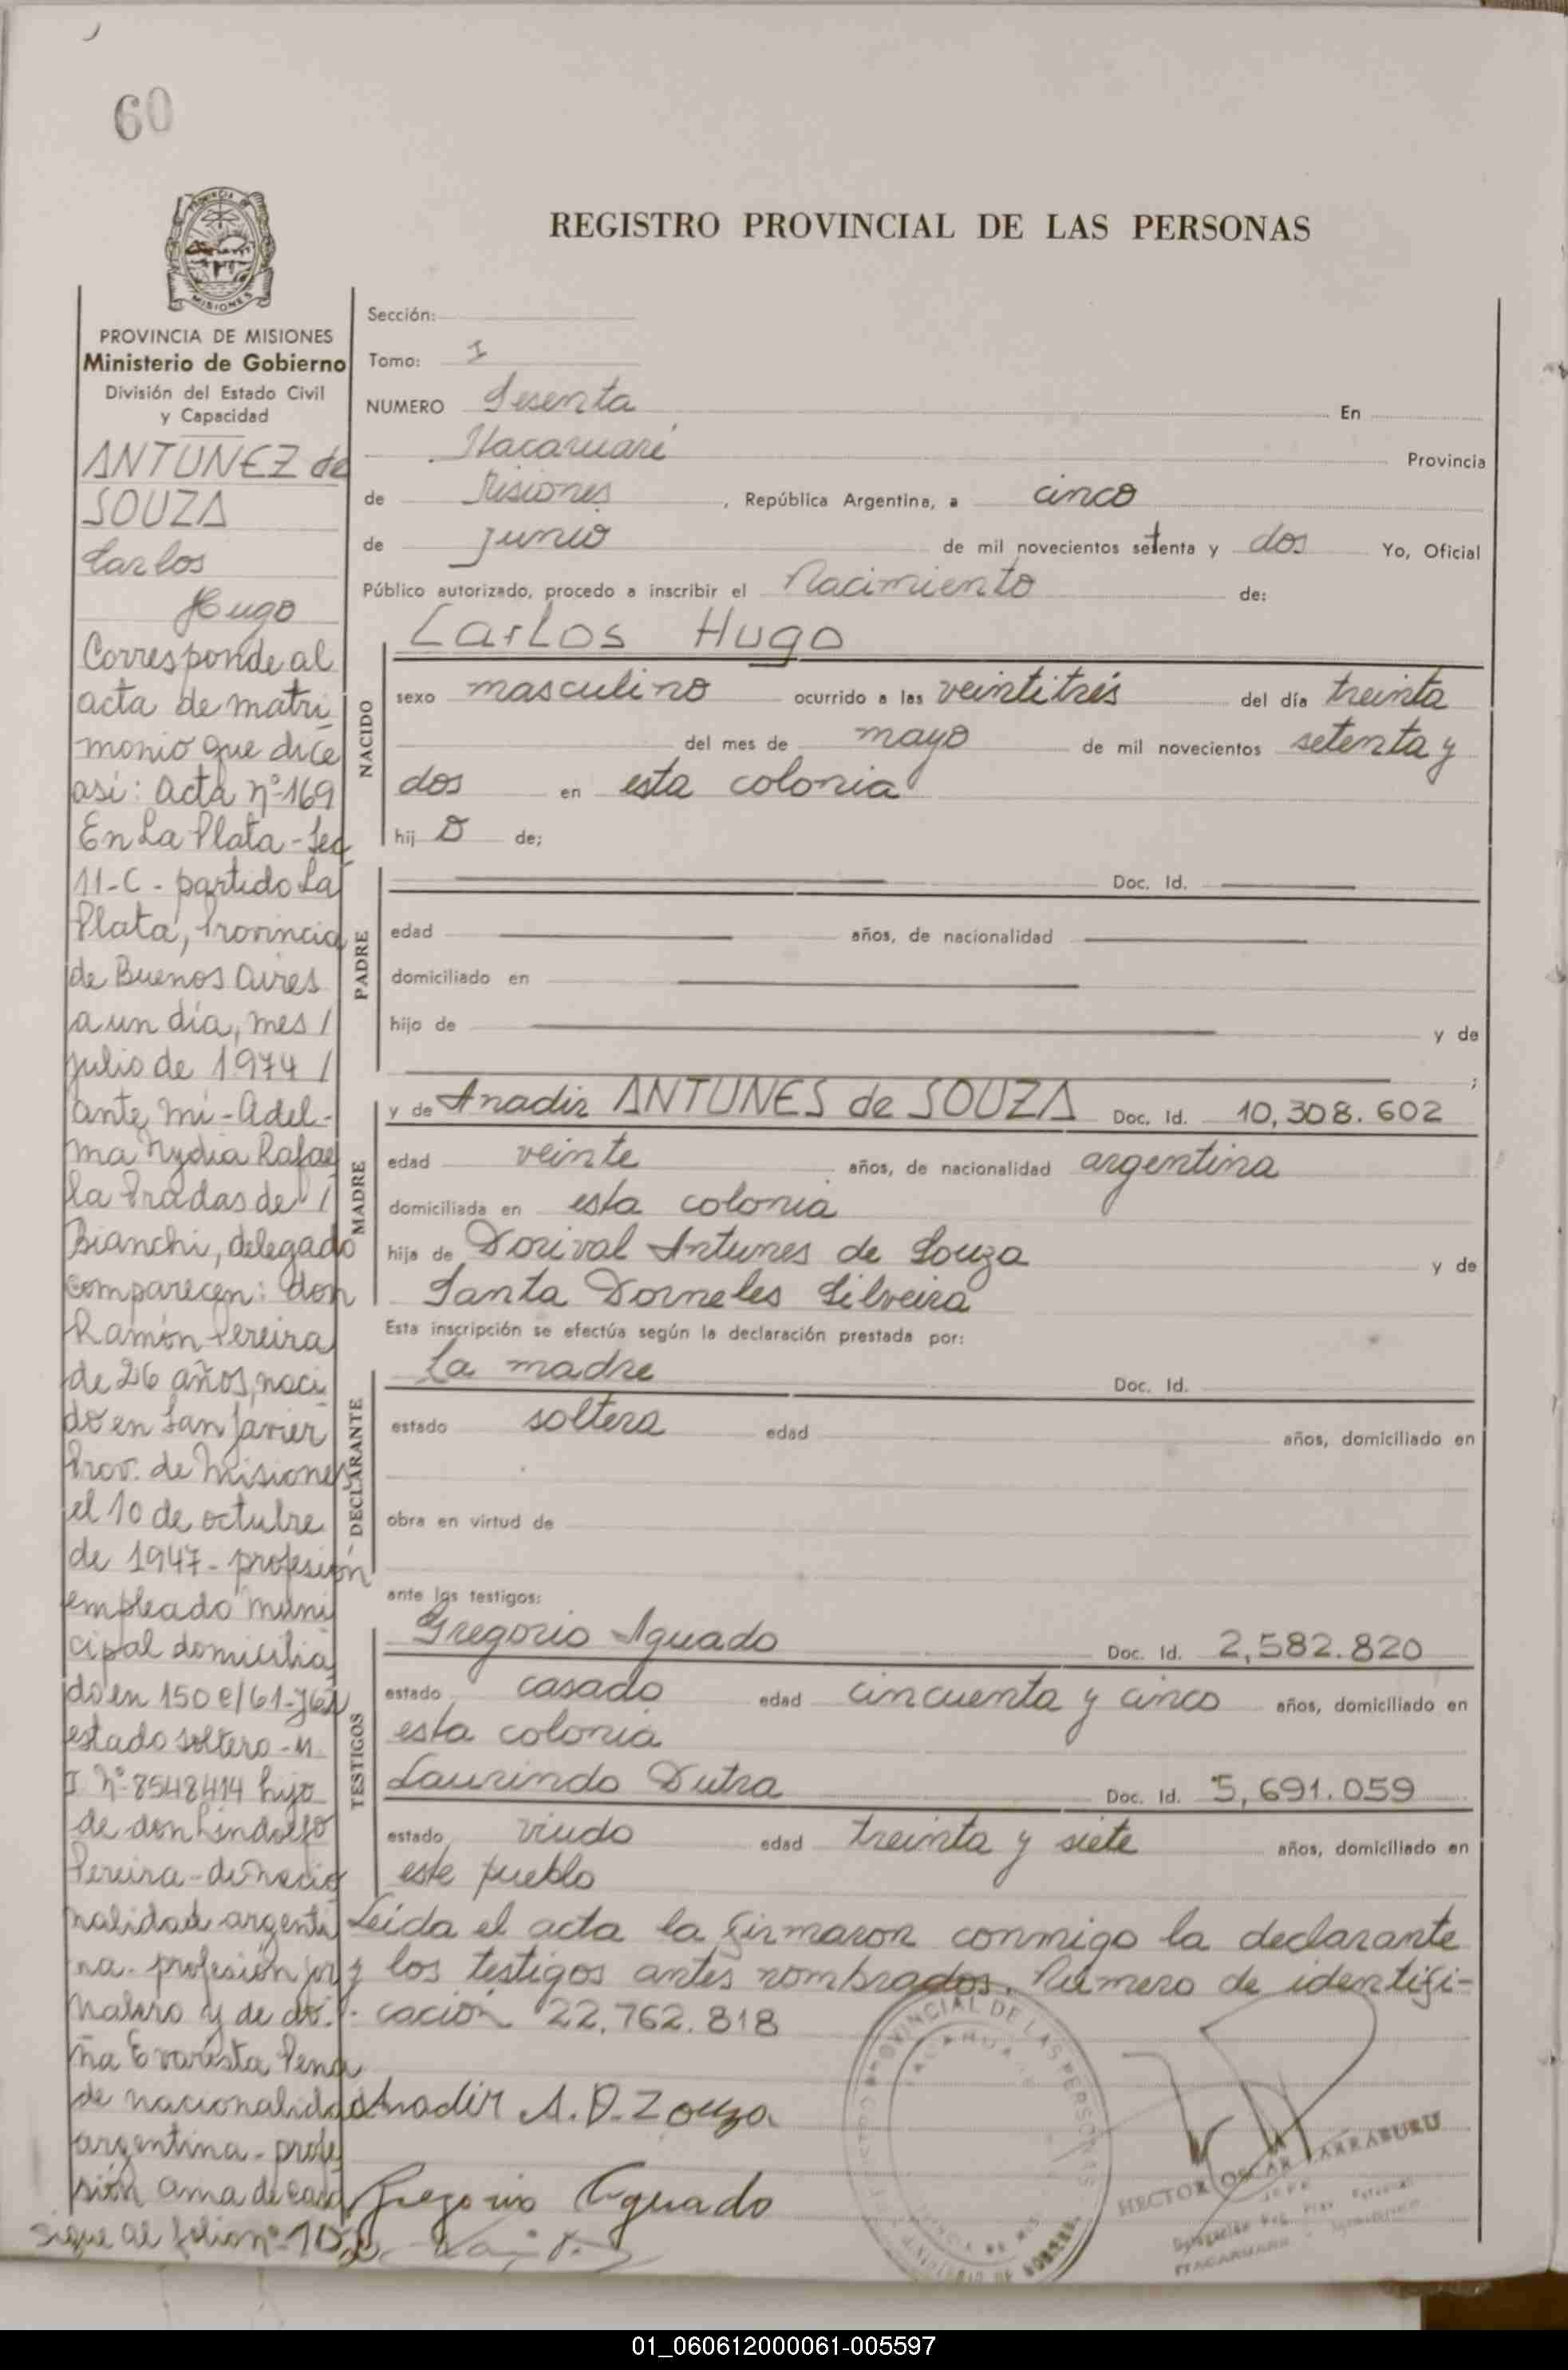 60
REGISTRO PROVINCIAL DE LAS PERSONAS
MISIONES
PROVINCIA DE MISIONES
Ministerio de Gobierno
División del Estado Civil
y Capacidad
ANTUNEZ de
SOUZA
Carlos
Hugo
Corresponde al
acta de matri
monio que dice
asi: acta nº 169
En La Plata - Sec
11-C - partido La
Plata, Provincia
de Buenos Aires
a un día, mes /
julio de 1974 /
ante mi - Adel-
ma Nydia Rafae
la Pradas de /
Bianchi, delegado
comparecen: don
Ramón Pereira
de 26 años, naci
do en San Javier
Prov. de Misiones
el 10 de octubre
de 1947 - profesion
empleado muni
cipal domicilia
do en 150 e/61-
estado soltero - M
I Nº 8548414 hijo
de don Lindolfo
Pereira - de nacio
nalidad argenti
na - profesión jor
nalero y de do-
ña Evarista Pena
de nacionalidad
argentina - profe
sión ama de casa
sigue al folio nº
Sección:
Tomo: I
NUMERO Sesenta En
Itacaruaré Provincia
de Misiones, República Argentina, a cinco
de junio de mil novecientos setenta y dos Yo, Oficial
Público autorizado, procedo a inscribir el Nacimiento de:
NACIDO
Carlos Hugo
sexo masculino ocurrido a las veintitrés del día treinta
del mes de mayo de mil novecientos setenta y
dos en esta colonia
hij o de;
PADRE
Doc. Id.
edad años, de nacionalidad
domiciliado en
hijo de y de
;
MADRE
y de Anadir ANTUNES de SOUZA Doc. Id. 10,308.602
edad veinte años, de nacionalidad argentina
domiciliada en esta colonia
hija de Dorival Antunes de Souza y de
Santa Dorneles Silveira
Esta inscripción se efectúa según la declaración prestada por:
DECLARANTE
La madre Doc. Id.
estado soltera edad años, domiciliado en
obra en virtud de
ante los testigos:
TESTIGOS
Gregorio Aguado Doc. Id. 2,582.820
estado casado edad cincuenta y cinco años, domiciliado en
esta colonia
Laurindo Dutra Doc. Id. 5,691.059
estado viudo edad treinta y siete años, domiciliado en
este pueblo
Leída el acta la firmaron conmigo la declarante
y los testigos antes nombrados. Número de identifi-
cación 22.762.818
Anadir A. D. Zouza
Gregorio Aguado
PROVINCIAL DE LAS PERSONAS
HECTOR OSCAR LARRABURU
JEFE
ITACARUARE
01_060612000061-005597